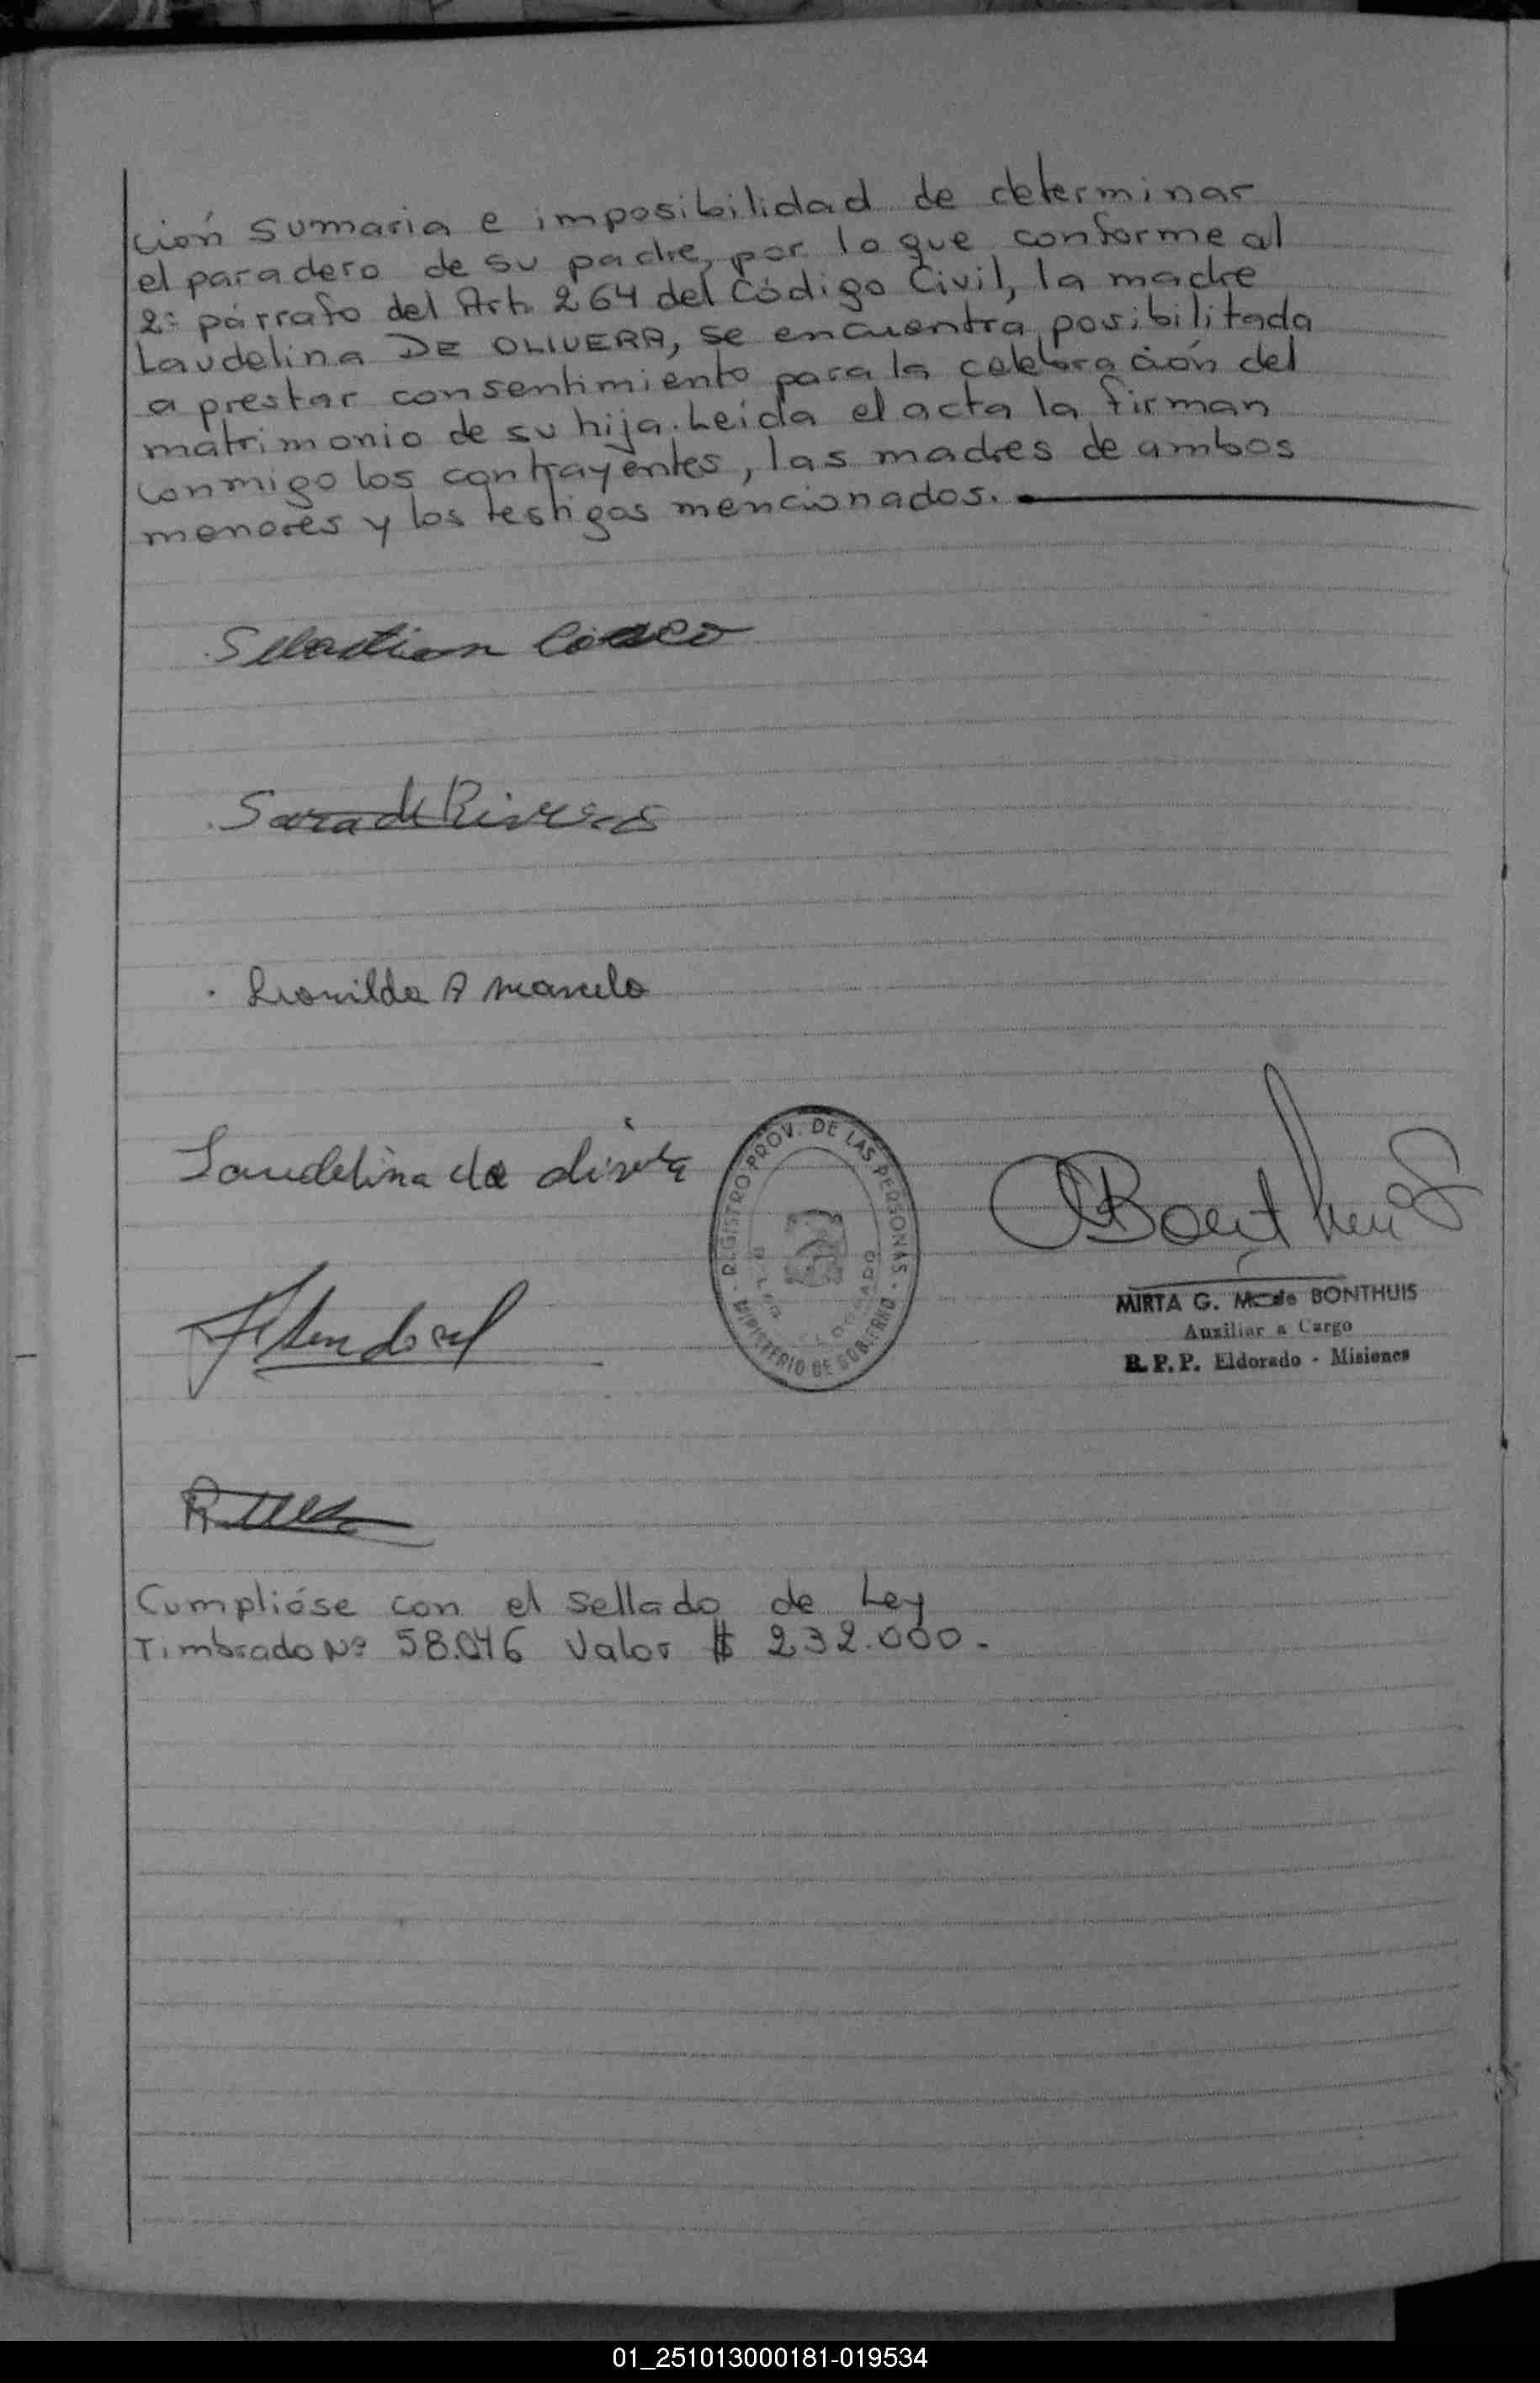 ción sumaria e imposibilidad de determinar
el paradero de su padre, por lo que conforme al
2º párrafo del Art. 264 del Código Civil, la madre
Laudelina DE OLIVERA, se encuentra posibilitada
a prestar consentimiento para la celebración del
matrimonio de su hija. Leída el acta la firman
conmigo los contrayentes, las madres de ambos
menores y los testigos mencionados.
Sebastian
Sara de
Leonilda A Marcelo
Laudelina de
REGISTRO PROV. DE LAS PERSONAS - MINISTERIO DE GOBIERNO -
ELDORADO
Bonthuis
MIRTA G. M. de BONTHUIS
Auxiliar a Cargo
R. P. P. Eldorado - Misiones
Cumplióse con el sellado de Ley
Timbrado Nº 58.046 Valor $ 232.000.-
01_251013000181-019534